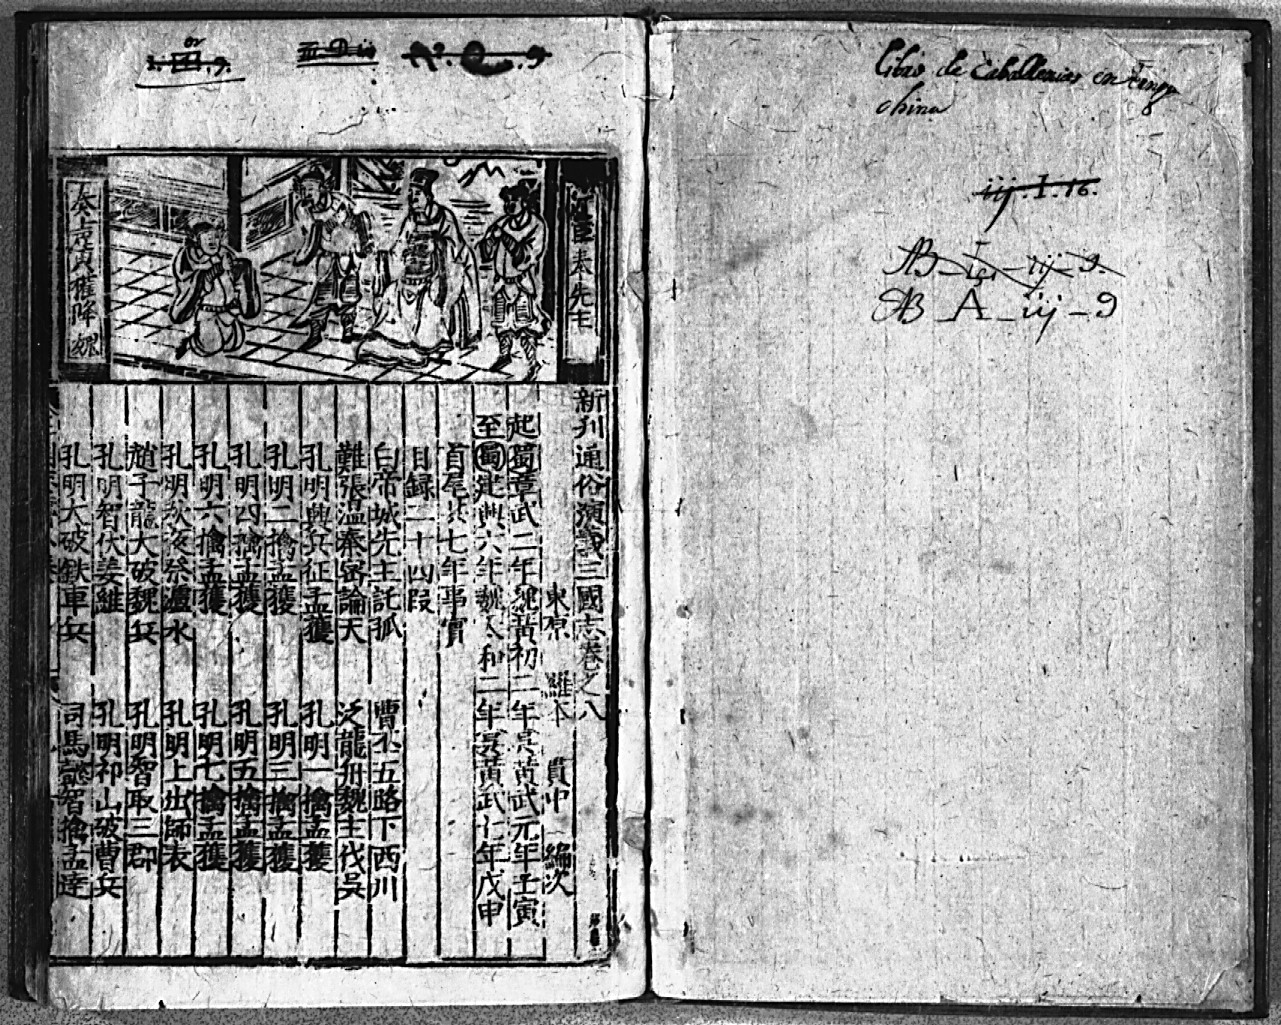 Libro de Caballerias en lengua
china
iij. I. 16.
AB - A - iij - 9
奏先主
奏上虛實權降魏
新刊通俗演義三國志卷之八
東原 羅本 貫中 編次
起蜀章武二年魏黃初三年吳黃武元年壬寅
至蜀建興六年魏太和二年吳黃武七年戊申
首尾共七年事實
目錄二十四段
白帝城先主託孤 曹丕五路下西川
難張溫秦宓論天 泛龍舟魏主伐吳
孔明興兵征孟獲 孔明一擒孟獲
孔明二擒孟獲 孔明三擒孟獲
孔明四擒孟獲 孔明五擒孟獲
孔明六擒孟獲 孔明七擒孟獲
孔明秋夜祭瀘水 孔明上出師表
趙子龍大破魏兵 孔明智取三郡
孔明智伏姜維 孔明祁山破曹兵
孔明大破鉄車兵 司馬懿智擒孟達